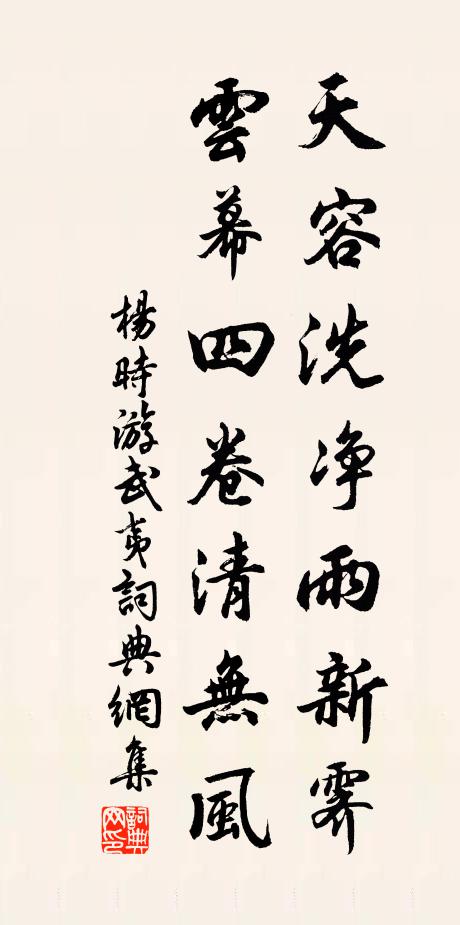 天容洗净雨新霽
雲幕四卷清無風
楊時游武夷詞典網集
詞典網印